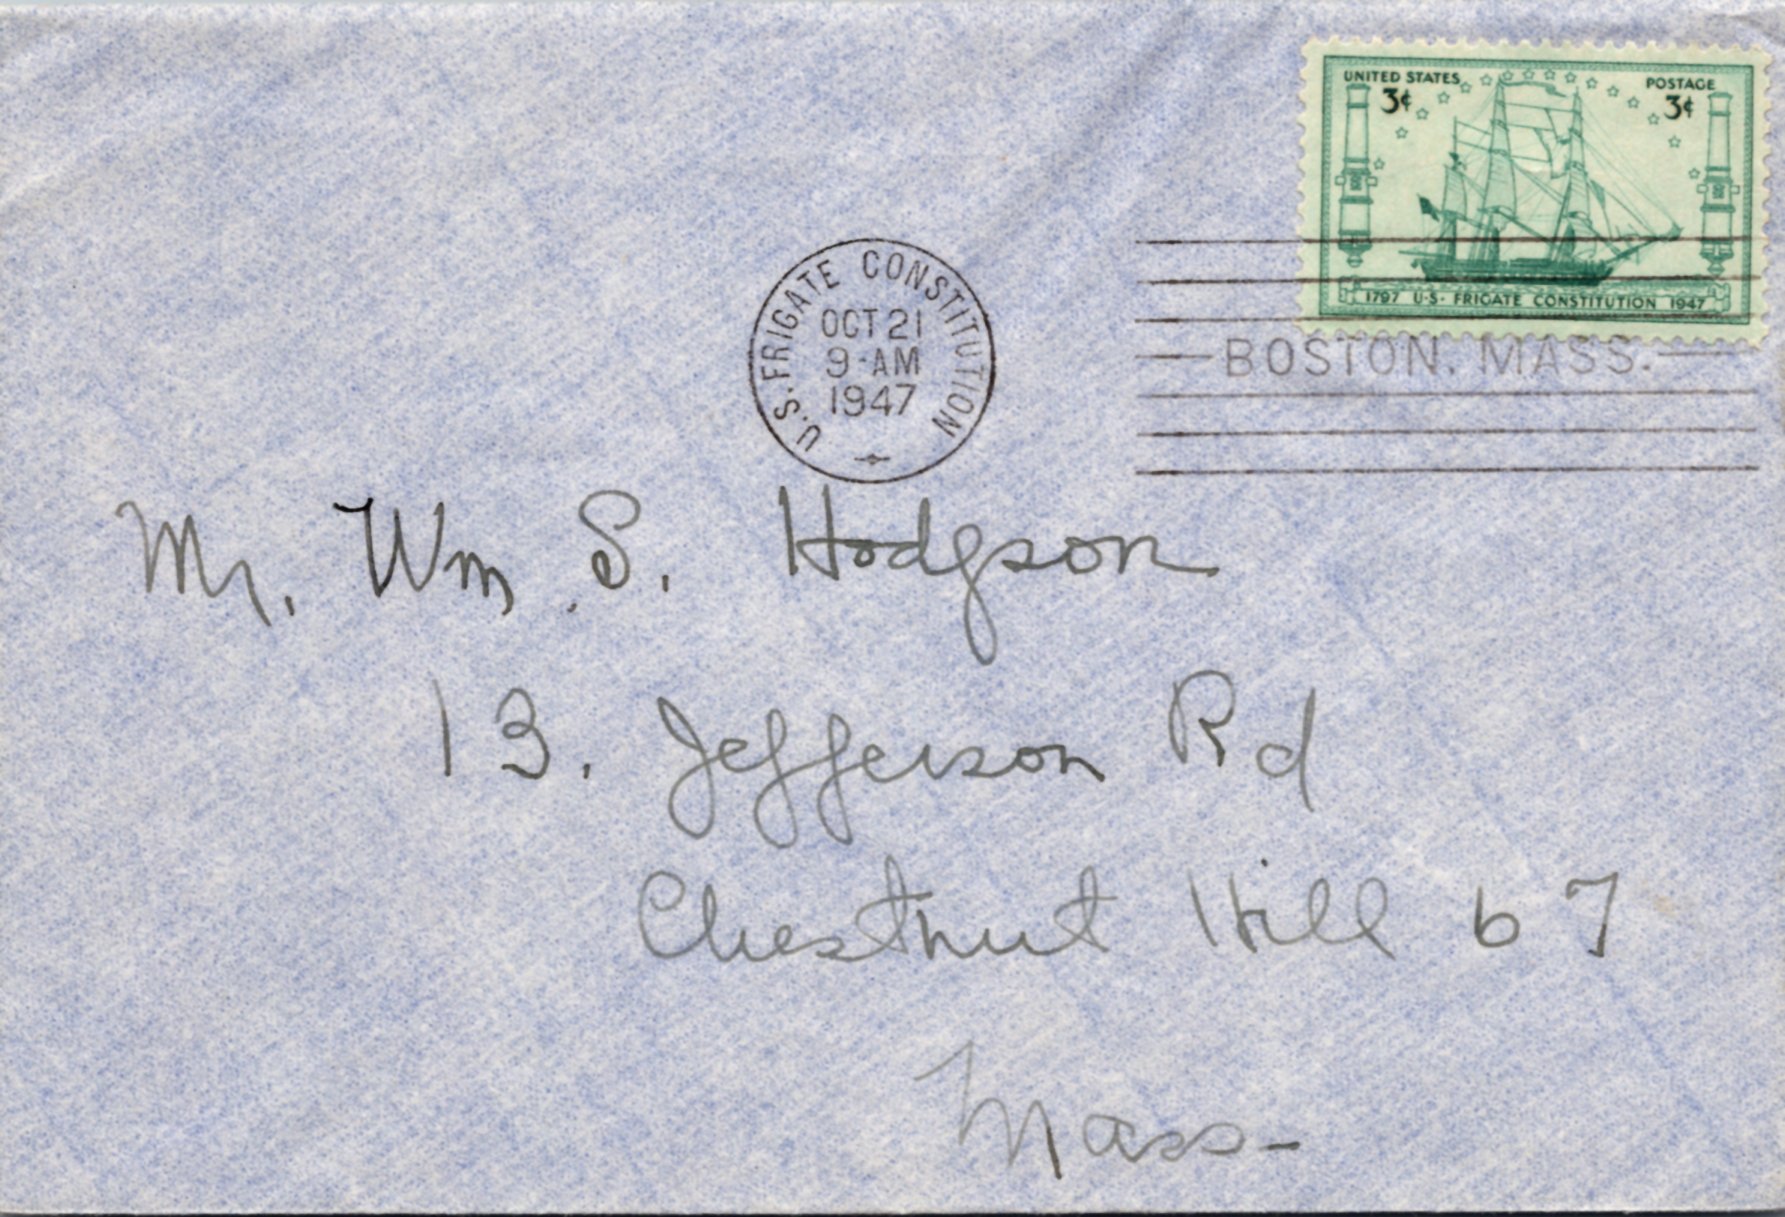 UNITED STATES POSTAGE
3¢ 3¢
1797 U·S· FRIGATE CONSTITUTION 1947
U.S. FRIGATE CONSTITUTION
OCT 21
9-AM
1947
BOSTON, MASS.
Mr. Wm. S. Hodgson
13. Jefferson Rd
Chestnut Hill 67
Mass-